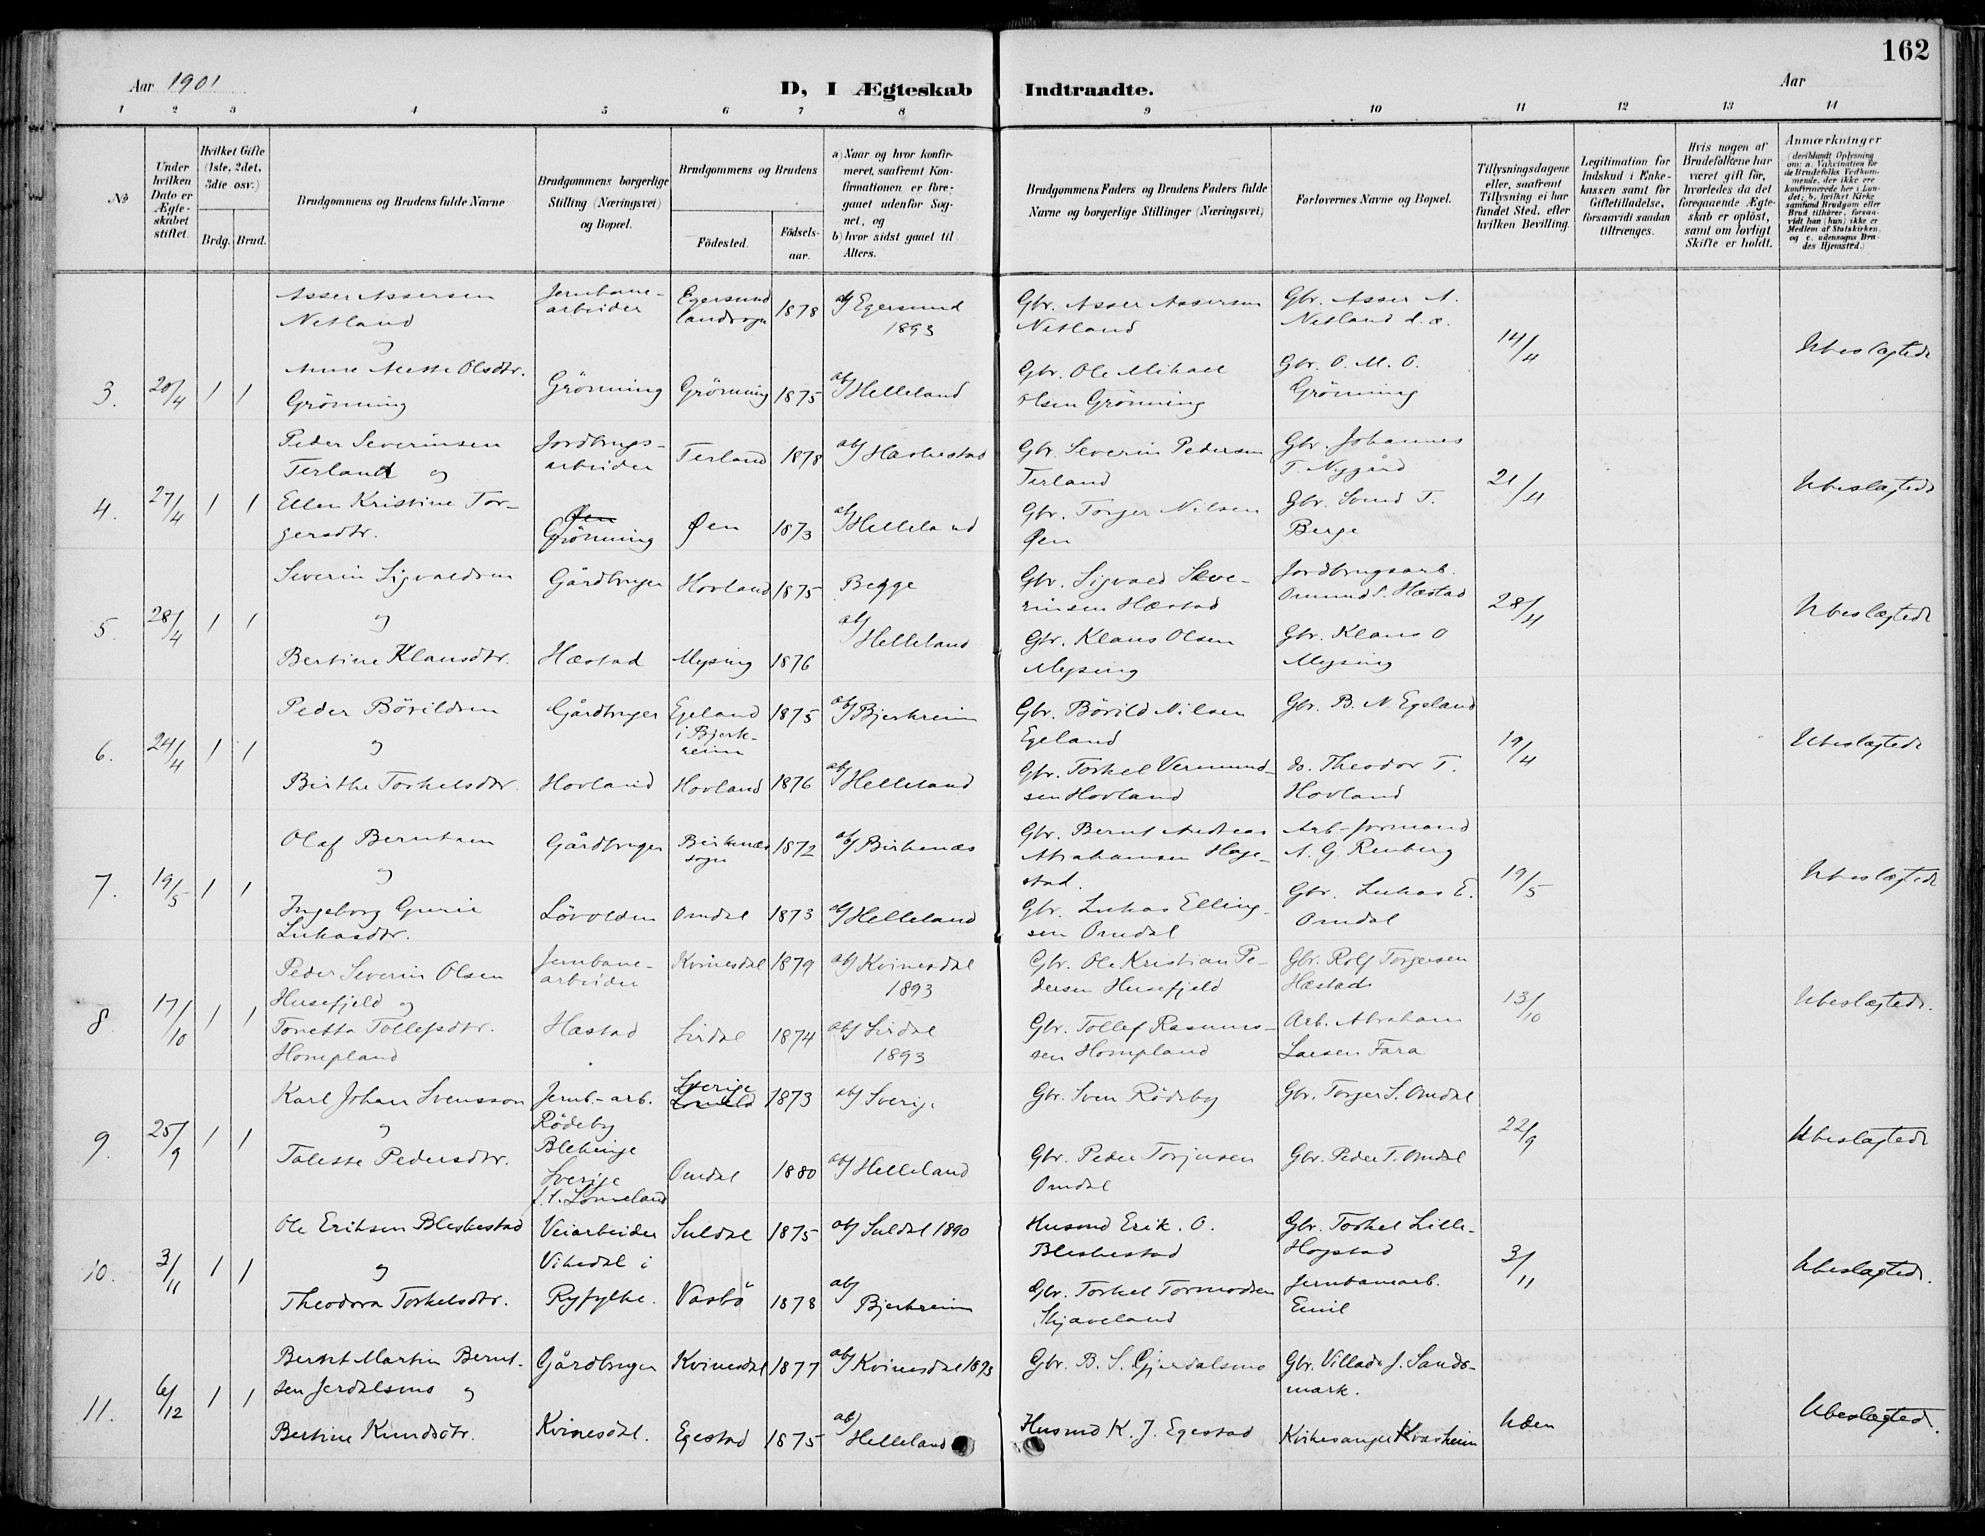 162
Aar 1901
D, I Ægteskab Indtraadte.
Aar
1 2 3 4 5 6 7 8 9 10 11 12 13 14
No
Under hvilken Dato er Ægteskabet stiftet.
Hvilket Gifte (1ste, 2det, 3die osv.)
Brdg. Brud.
Brudgommens og Brudens fulde Navne
Brudgommens borgerlige Stilling (Næringsvei) og Bopæl.
Brudgommens og Brudens
Födested.
Födselsaar.
a) Naar og hvor konfirmeret, saafremt Konfirmationen er foregaaet udenfor Sognet, og
b) hvor sidst gaaet til Alters.
Brudgommens Faders og Brudens Faders fulde Navne og borgerlige Stillinger (Næringsvei)
Forlovernes Navne og Bopæl.
Tillysningsdagene eller, saafremt Tillysning ei har fundet Sted, efter hvilken Bevilling.
Legitimation for Indskud i Enkekassen samt for Giftetilladelse, forsaavidt saadan tiltrænges.
Hvis nogen af Brudefolkene har været gift før, hvorledes da det foregaaende Ægteskab er oplöst, samt om lovligt Skifte er holdt.
Anmærkninger
(deriblandt Oplysning om: a. Vakcination for de Brudefolks Vedkommende, der ikke ere konfirmerede her i Landet; b. hvilket Kirkesamfund Brudgom eller Brud tilhører, forsaavidt han (hun) ikke er Medlem af Statskirken, og c. udensogns Brudes Hjemsted.)
3. 20/4 1 1
Asser Assersen Netland
og
Anne Mette Olsdtr. Grönning
Jernbanearbeider
Grönning
Egersund landsogn 1878
Grönning 1875
a/ Egersund 1893
ab/ Helleland
Gbr. Asser Assersen Netland
Gbr. Ole Mikael Olsen Grönning
Gbr. Asser A. Netland d. æ.
Gbr. O. M. O. Grönning
14/4
Ubeslægtede
4. 27/4 1 1
Peder Severinsen Terland og
Ellen Kristine Torgersdtr.
Jordbrugsarbeider
Øen
Grönning
Terland 1878
Øen 1873
ab/ Heskestad
ab/ Helleland
Gbr. Severin Pedersen Terland
Gbr. Torger Nilsen Øen
Gbr. Johannes T. Nygård
Gbr. Svend T. Berge
21/4
Ubeslægtede
5. 28/4 1 1
Severin Sigvaldsen
og
Bertine Klausdtr.
Gårdbruger
Hæstad
Hovland 1875
Mysing 1876
Begge
ab/ Helleland
Gbr. Sigvald Severinsen Hæstad
Gbr. Klaus Olsen Mysing
Jordbrugsarb. Omund S. Hæstad
Gbr. Klaus O Mysing
28/4
Ubeslægtede
6. 24/4 1 1
Peder Börildsen
og
Birthe Torkelsdtr.
Gårdbruger
Hovland
Egeland i Bjerkreim 1875
Hovland 1876
ab/ Bjerkreim
ab/ Helleland
Gbr. Börild Nilsen Egeland
Gbr. Torkel Vermundsen Hovland
Gbr. B. N. Egeland
do. Theodor T. Hovland
19/4
Ubeslægtede
7. 19/5 1 1
Olaf Berntsen
og
Ingeborg Gurie Lukasdtr.
Gårdbruger
Lövolden
Birkenæs sogn 1872
Omdal 1873
ab/ Birkenæs
ab/ Helleland
Gbr. Bernt Andreas Abrahamsen Hogestad.
Gbr. Lukas Ellingsen Omdal
Arb-formand A. G. Renberg
Gbr. Lukas E. Omdal
19/5
Ubeslægtede
8. 17/10 1 1
Peder Severin Olsen Husefjeld og
Tonetta Tollefsdtr. Hompland
Jernbanearbeider
Hæstad
Kvinesdal 1879
Sirdal 1874
ab/ Kvinesdal 1893
ab/ Sirdal 1893
Gbr. Ole Kristian Pedersen Husefjeld
Gbr. Tollef Rasmussen Hompland
Gbr. Rolf Torgersen Hæstad
Arb. Abraham Larsen Fara
13/10
Ubeslægtede.
9. 25/9 1 1
Karl Johan Svensson
og
Talette Pedersdtr.
Jernb.-arb. Rödeby Blekinge Sverige
f. t. Lömeland
Sverige 1873
Omdal 1880
ab/ Sverige
ab/ Helleland
Gbr. Sven Rödeby
Gbr. Peder Torjusen Omdal
Gbr. Torger S. Omdal
Gbr. Peder T. Omdal
22/9
Ubeslægtede
10. 3/11 1 1
Ole Eriksen Bleskestad
og
Theodora Torkelsdtr.
Veiarbeider
Vikedal i Ryfylke.
Suldal 1875
Vasbö 1878
ab/ Suldal 1890
ab/ Bjerkreim
Husmd Erik. O. Bleskestad
Gbr. Torkel Tormodsen Skjæveland
Gbr. Torkel Lille-Hogstad
Jernbanearb. Emil
3/11
Ubeslægtede.
11. 6/12 1 1
Bernt Martin Berntsen Jerdalsmo og
Bertine Knudsdtr.
Gårdbruger
Kvinesdal.
Kvinesdal 1877
Egestad 1875
ab/ Kvinesdal 1893
ab/ Helleland
Gbr. B. S. Gjerdalsmo
Husmd K. J. Egestad
Gbr. Villads J. Sandsmark.
Kirkesanger Kvasheim
Uden
Ubeslægtede.